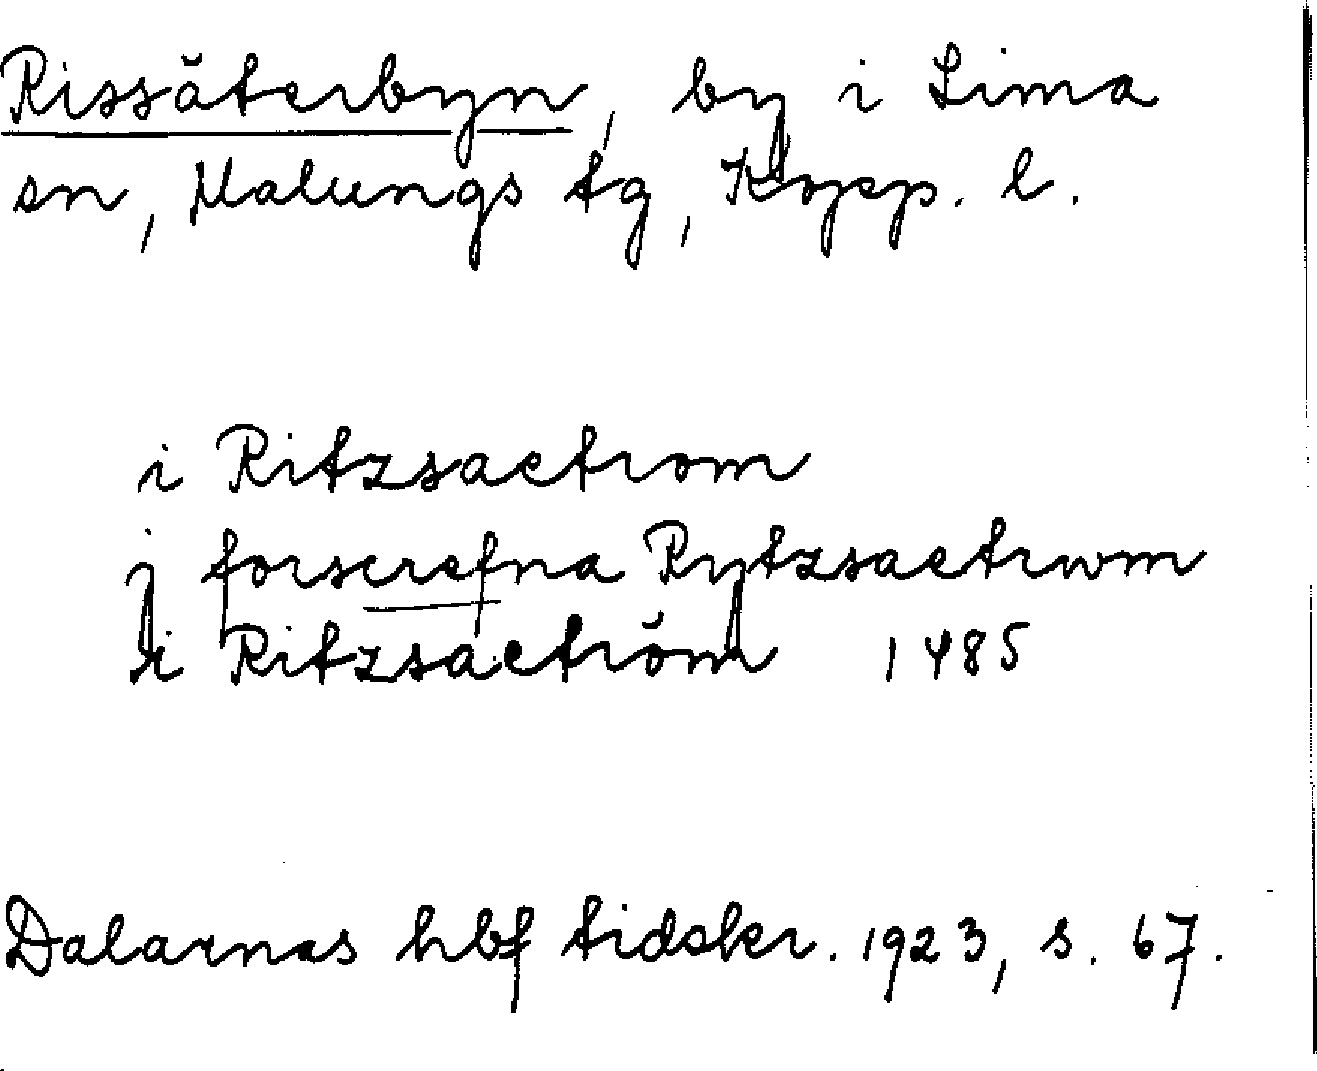 Rissäterbyn, by i Lima
sn, Malungs tg, Kopp. l.
i Ritzsaetrom
j forscrefna Rytzsaetrwm
i Ritzsaetröm 1485
Dalarnas hbf tidskr. 1923, s. 67.